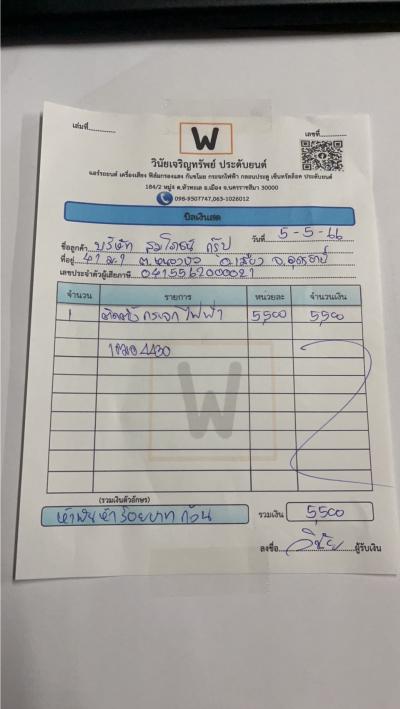 เล่มที่
W
เลขที่
วินัยเจริญทรัพย์ ประดับยนต์
แอร์รถยนต์ เครื่องเสียง ฟิล์มกรองแสง กันขโมย กระจกไฟฟ้า กลอนประตู เซ็นทรัลล็อค ประดับยนต์
184/2 หมู่6 ต.หัวทะเล อ.เมือง จ.นครราชสีมา 30000
098-9507747,063-1026012
บิลเงินสด
วันที่ 5-5-66
ชื่อลูกค้า บริษัท กรุ๊ป
ที่อยู่ 41 ม.1 ต.หนองบัว จ.อุดรธานี
เลขประจำตัวผู้เสียภาษี 0415562000021
จำนวน รายการ หน่วยละ จำนวนเงิน
1 ติดตั้งกระจกไฟฟ้า 5,500 5,500
4430
W
(รวมเงินตัวอักษร)
ห้าพันห้าร้อยบาทถ้วน รวมเงิน 5,500
ลงชื่อ วินัย ผู้รับเงิน